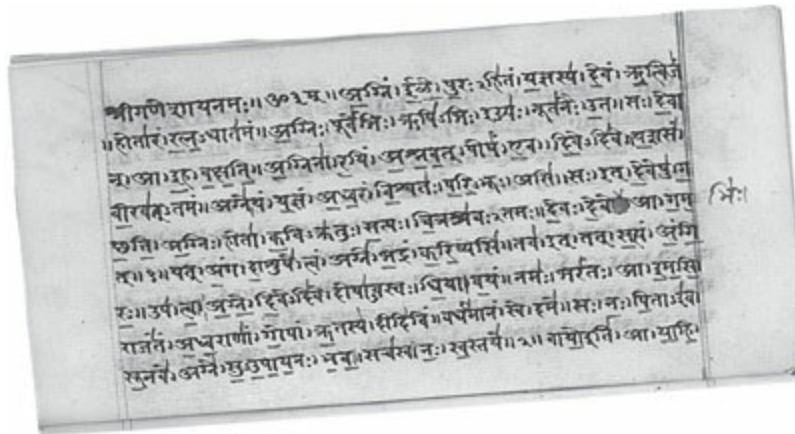 श्रीगणेशायनमः॥ ॐ३म्॥ अ॒ग्निं। ई॒ळे॒। पु॒रःऽहि॑तं। य॒ज्ञस्य॑। दे॒वं। ऋ॒त्विजं॑
॥होता॑रं। र॒त्न॒ऽधात॑मं॥ अ॒ग्निः। पूर्वे॑भिः। ऋषि॑ऽभिः। ईड्यः॑। नूत॑नैः। उ॒त। सः। दे॒वा
न्। आ। इ॒ह। व॒क्ष॒ति॒॥ अ॒ग्निना॑। र॒यिं। अ॒श्न॒व॒त्। पोषं॑। ए॒व। दि॒वेऽदि॑वे। य॒शसं॑
वी॒रव॑त्ऽतमं॥ अग्ने॑। यं। य॒ज्ञं। अ॒ध्व॒रं। वि॒श्वतः॑। प॒रि॒ऽभूः। असि॑॥ सः। इत्। दे॒वेषु॑। ग॒
च्छ॒ति॒॥ अ॒ग्निः। होता॑। क॒विऽक्र॑तुः। स॒त्यः। चि॒त्रश्र॑वःऽतमः॥ दे॒वः। दे॒वे आ। ग॒म॒
भिः।
त्॥१॥ यत्। अं॒ग। दा॒शुषे॑। त्वं। अग्ने॑। भ॒द्रं। क॒रि॒ष्यसि॑॥ तव॑। इत्। तत्। स॒त्यं। अं॒गि॒
रः॒॥ उप॑। त्वा॒। अ॒ग्ने॒। दि॒वेऽदि॑वे। दोषा॑ऽवस्तः। धि॒या। व॒यं॥ नमः॑। भरं॑तः। आ। इ॒म॒सि॒
राजं॑तं। अ॒ध्व॒राणां॑। गो॒पां। ऋ॒तस्य॑। दीदि॑विं॥ वर्ध॑मानं। स्वे। दमे॑॥ सः। नः॒। पि॒ताऽइ॑व
सू॒नवे॑। अग्ने॑। सु॒ऽउ॒पा॒य॒नः। भ॒व॒॥ सच॑स्व। नः॒। स्व॒स्तये॑॥२॥ वायो॒इति॑। आ। या॒हि॒।